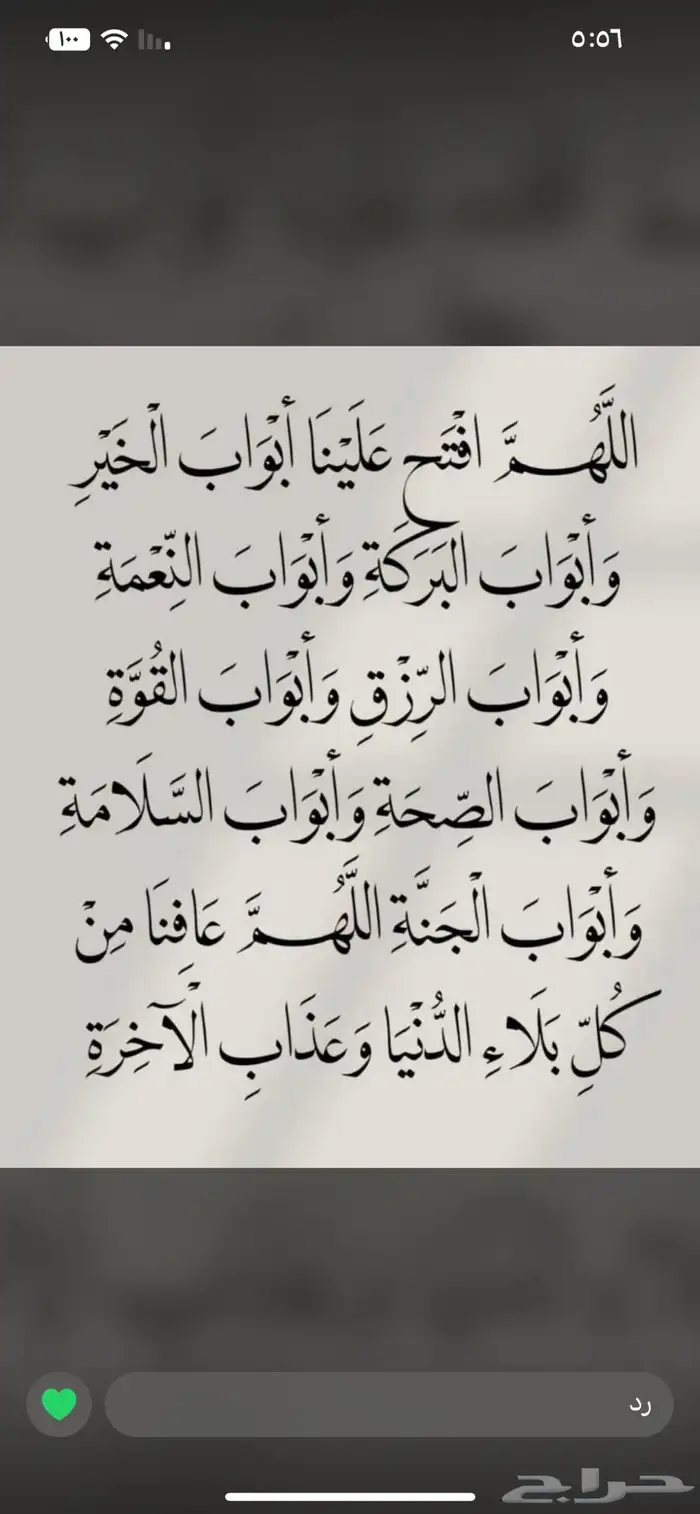 ١٠٠
٥:٥٦
اللَّهُمَّ افْتَح عَلَيْنَا أَبْوَابَ الْخَيْرِ
وَأَبْوَابَ البَرَكَةِ وَأَبْوَابَ النِّعْمَةِ
وَأَبْوَابَ الرِّزْقِ وَأَبْوَابَ القُوَّةِ
وَأَبْوَابَ الصِّحَةِ وَأَبْوَابَ السَّلَامَةِ
وَأَبْوَابَ الْجَنَّةِ اللَّهُمَّ عَافِنَا مِنْ
كُلِّ بَلَاءِ الدُّنْيَا وَعَذَابِ الْآخِرَةِ
رد
حراج